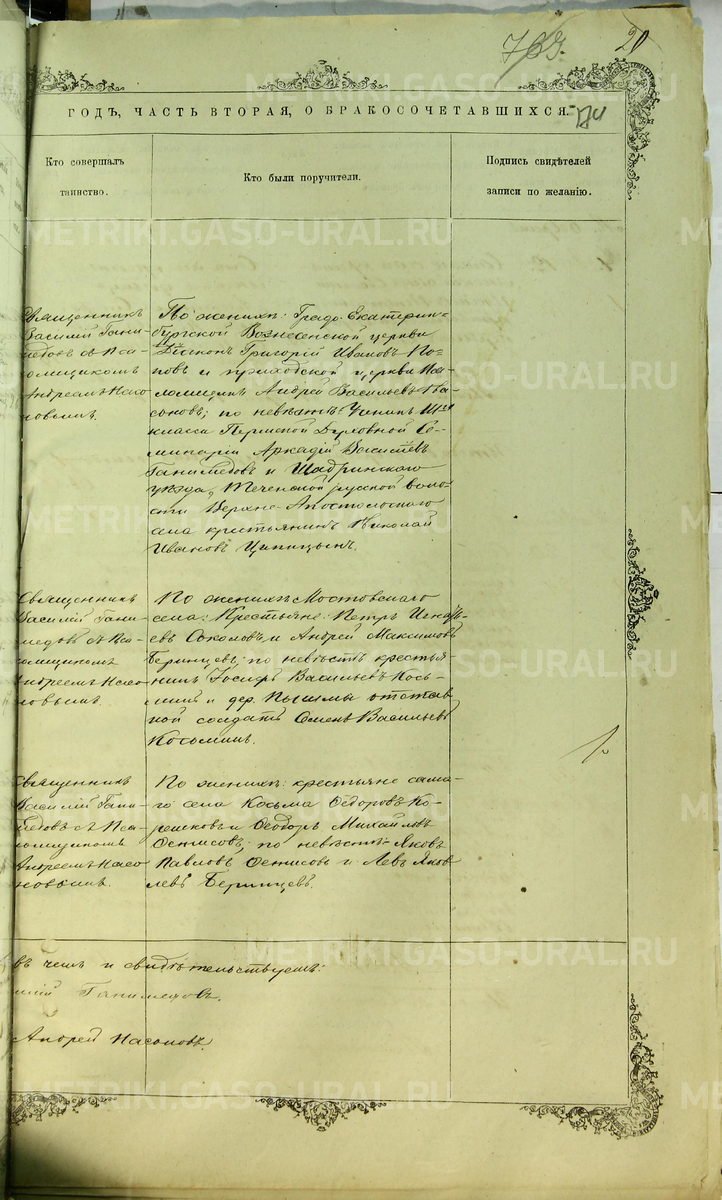 20
ГОДЪ, ЧАСТЬ ВТОРАЯ, О БРАКОСОЧЕТАВШИХСЯ.
Кто совершалъ
таинство.
Кто были поручители.
Подпись свидѣтелей
записи по желанію.
Священникъ
Василій Гани-
медовъ съ Пса-
ломщикомъ
Андреемъ Насо
новымъ.
По женихѣ: Градо-Екатерин-
бургской Вознесенской церкви
Діаконъ Григорій Ивановъ По-
повъ и приходской церкви Пса-
ломщикъ Андрей Васильевъ На-
соновъ; по невѣстѣ: Ученикъ
класса Пермской Духовной Се-
минаріи Аркадій Васильевъ
Ганимедовъ и Шадринскаго
уѣзда, Теченской русской воло-
сти Верхне-
села крестьянинъ Николай
Ивановъ Ципицынъ.
Священникъ
Василій Гани-
медовъ съ Пса-
ломщикомъ
Андреемъ Насо
новымъ.
По женихѣ Мостовскаго
села: Крестьяне: Петръ Игнать-
евъ Соколовъ и Андрей Максимовъ
Беринцевъ; по невѣстѣ крестья-
нинъ Іосифъ Васильевъ Кось-
минъ и дер. Пышмы отстав-
ной солдатъ Семенъ Васильевъ
Косьминъ.
Священникъ
Василій Гани-
медовъ съ Пса-
ломщикомъ
Андреемъ Насо
новымъ.
По женихѣ: крестьяне сама-
го села Косьма Ѳедоровъ Ко-
решковъ и Ѳеодоръ Михайловъ
по невѣстѣ: Яковъ
Павловъ и Левъ Яков
левъ Беринцевъ.
въ чемъ и свидѣтельствуемъ:
Ганимедовъ.
Андрей Насоновъ.
METRIKI.GASO-URAL.RU